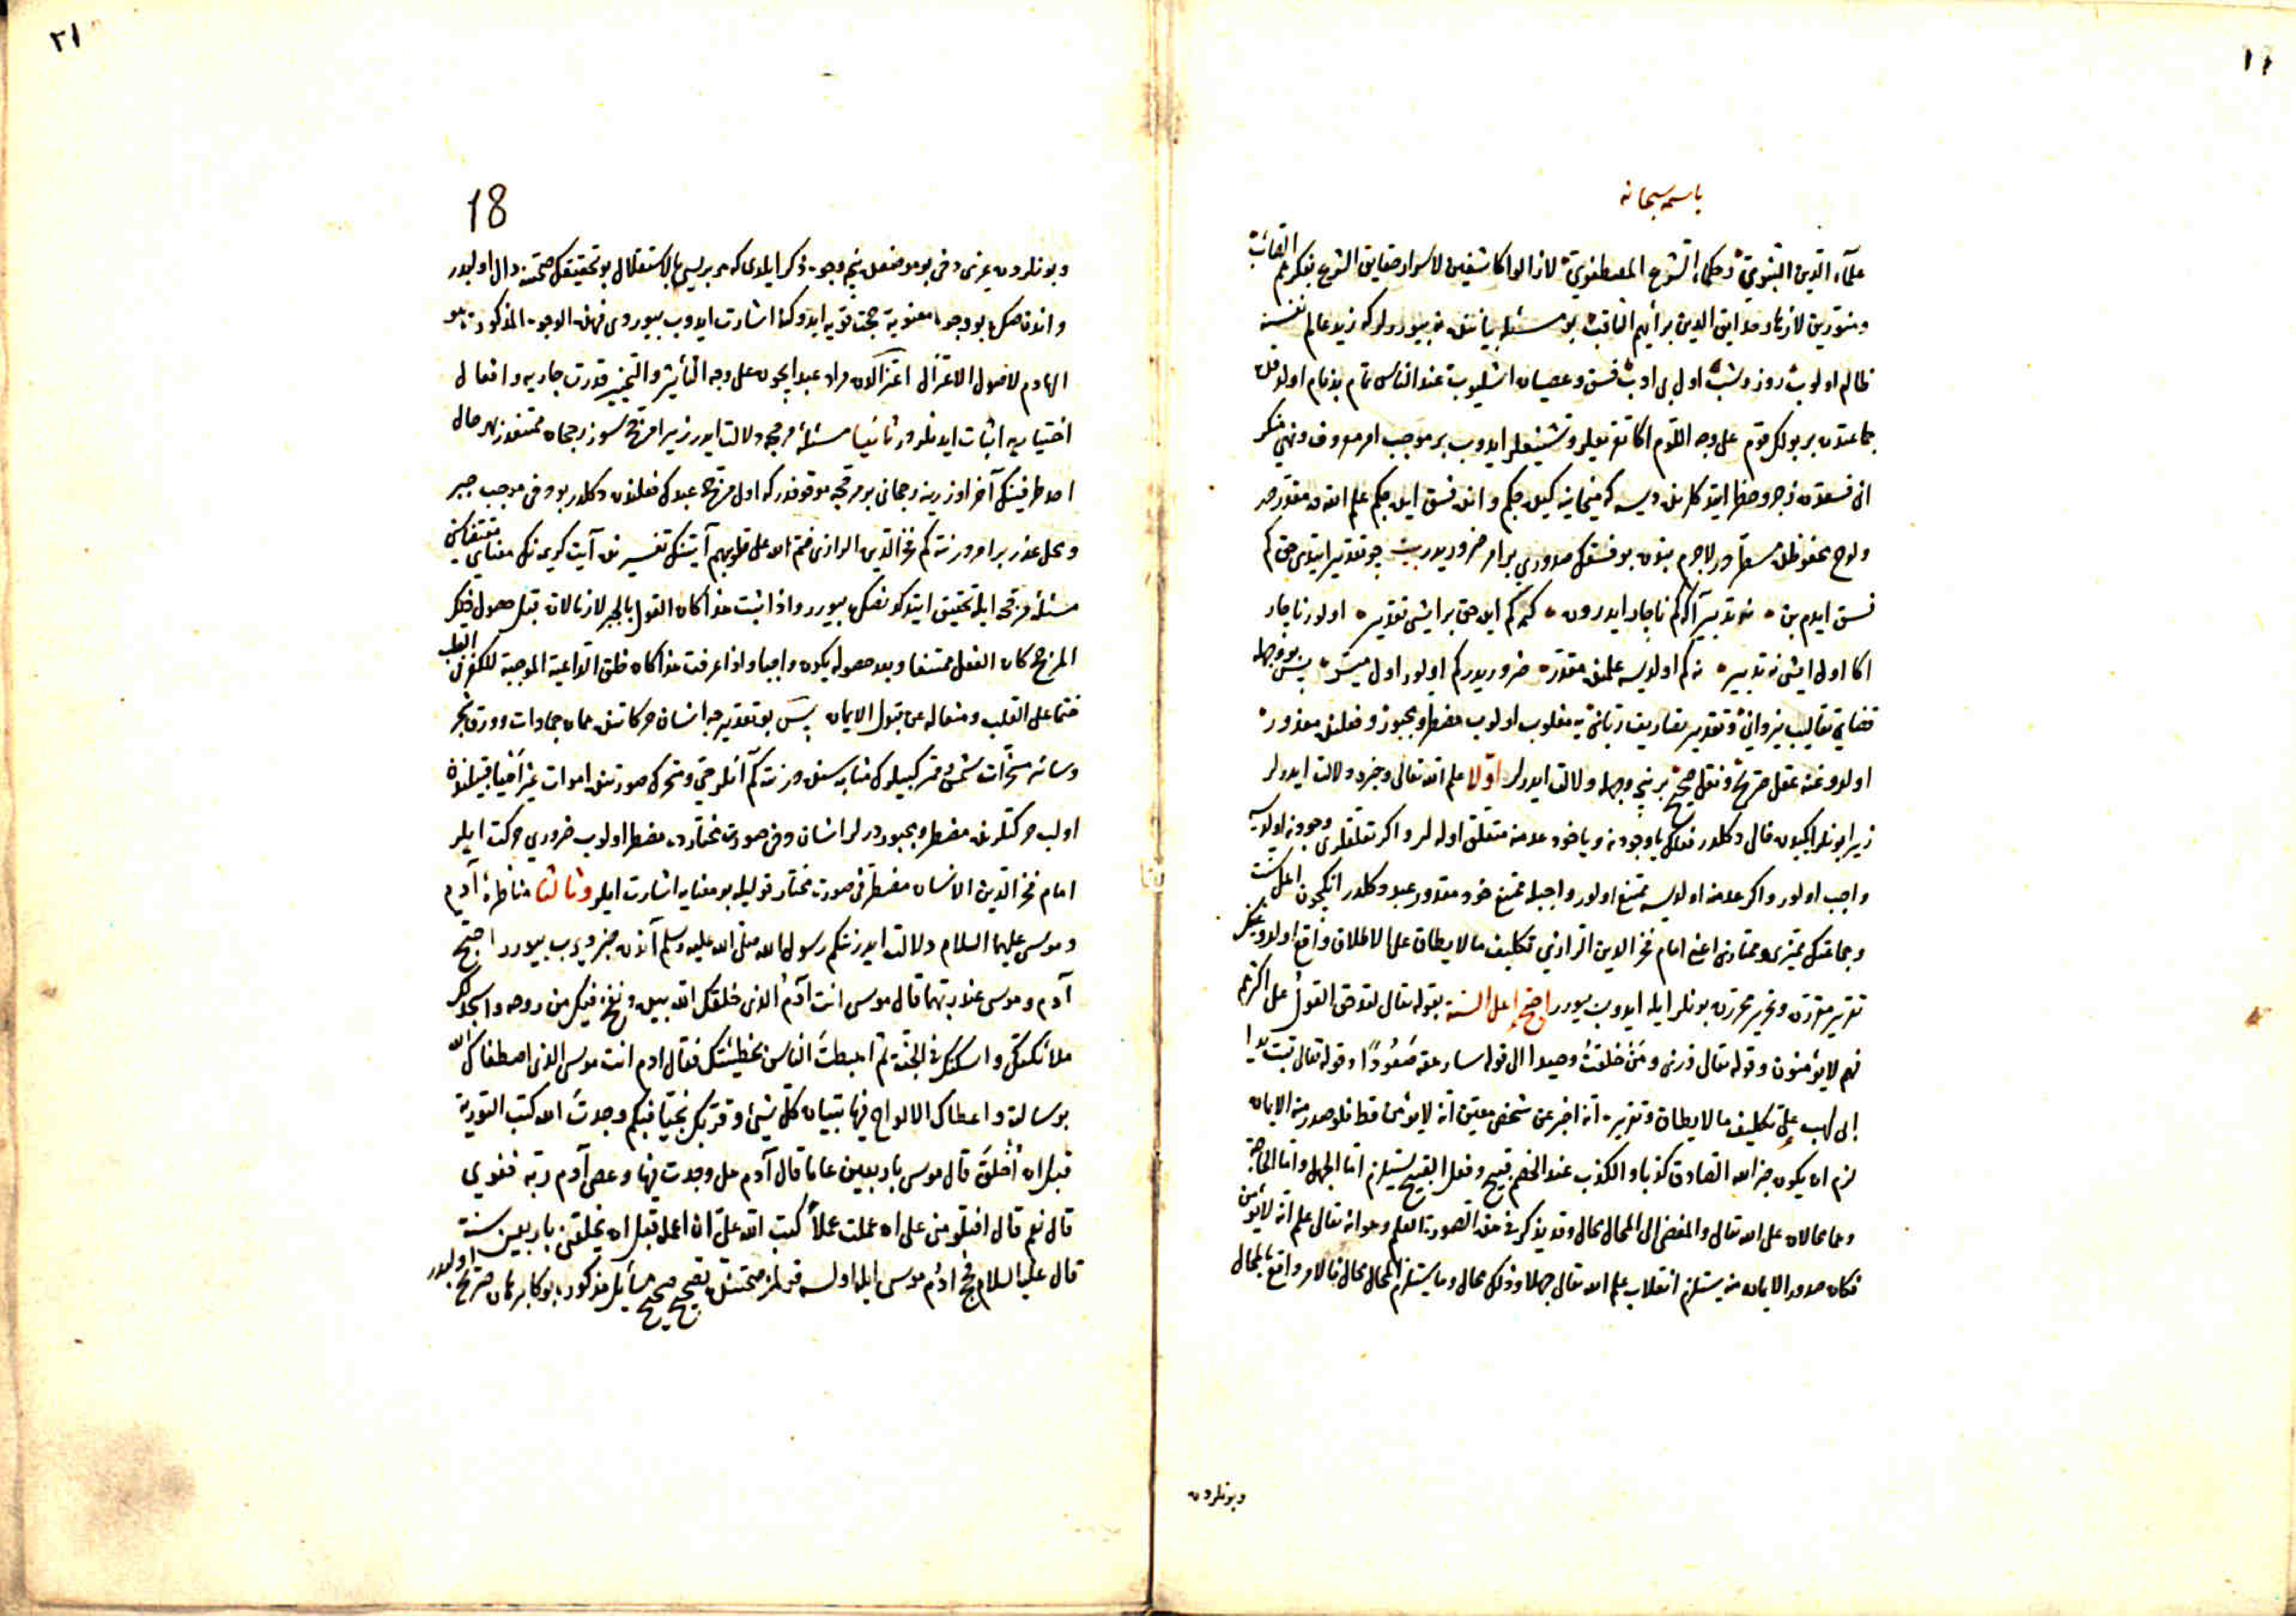 ١١
باسمه سبحانه
علماء الدين النبوي وحكماء الشرع المصطفوي لازالوا كاشفين لاسرار حقايق الشرع بفكرهم الصائب
ومنورين لازهار حدايق الدين برأيهم الثاقب بو مسئله بياننده نه بيوررلر كه زيد عالم نفسنه
ظالم اولوب روز وشب اول بى ادب فسق وعصيان اشليوب عند الناس تمام بدنام اولوقده
جماعتدن بر بولك قوم على وجه اللوم اكا تقريعلر وتشنيعلر ايدوب بر موجب امر معروف ونهي منكر
انى فسقدن زجر ومنع ايتدكلرنده ديسه كه ميخانيه كيدهجكم وانده فسق ايدهجكم علم الله ده مقدر در
ولوح محفوظده مسطر در لاجرم بندن بو فسقك صدوري بر امر ضروريدر بيت چو تقدير ايتدى حق كم
فسق ايدم بن ٠ نه تدبير آكه كم ناچار ايدرون ٠ كه كم ايده حق بر ايشى تقدير ٠ اولور ناچار
اكا اول ايشى نه تدبير ٠ نه كم اولديسه علمنده مقدر ٠ ضروريدر كم اولور اول ميسر ٠ پس بو وجهله
قضاي تقاليب يزداني وتقدير تصاريف رباني يه مغلوب اولوب مضطر ومجبور وفعلنده معذور
اولدوغنه عقل صريح ونقل صحيح بر نيجه وجهله دلالت ايدرلر اولا علم الله تعالى وخبره دلالت ايدرلر
زيرا بونلر ايكيدن خالى دكلدر فعلك يا وجودنه ويا خود عدمنه متعلق اوله لر واكر تعلقلرى وجودنه اوليه
واجب اولور واكر عدمنه اولديسه ممتنع اولور واجبله ممتنع خود مقدور عبد دكلدر انكچون اهل سنت
وجماعتك ممتازى اعنى امام فخر الدين الرازي تكليف ما لا يطاق على الاطلاق واقع اولدوغن
تقرير مقرره وتحرير محرره بونلر ايله ايدوب بيورر احتج اهل السنة بقوله تعالى لقد حق القول على اكثرهم
فهم لا يؤمنون وقوله تعالى ذرني ومن خلقت وحيدا الى قوله سارهقه صعودا وقوله تعالى تبت يدا
ابى لهب على تكليف ما لا يطاق وتقريره انه اخبر عن شخص معين انه لا يؤمن قط فلو صدر منه الايمان
لزم ان يكون خبر الله الصادق كذبا والكذب عند الخصم قبيح وفعل القبيح يستلزم اما الجهل واما الحاجة
وهما محالان على الله تعالى والمفضى الى المحال محال وقد يذكر في هذه الصورة العلم وهو انه تعالى علم انه لا يؤمن
فكان صدور الايمان منه يستلزم انقلاب علم الله تعالى جهلا وذلك محال وما يستلزم المحال محال فالامر واقع بالمحال
وبونلردن
٢١
18
وبونلردن غيرى دخى بو موضعده بنچم وجه ذكر ايلدى كه هر بريسى بالاستقلال بو تحقيقك صحتنه دال اولور
واندنصكره بو وجوه معنوية حجت قويه ايدوكنا اشارت ايدوب بيوردى فهذه الوجوه المذكورة هو
الهادم لاصول الاعتزال اعتزالك مرادى عبد ايچون على وجه التأثير والتخيير قدرت جاريه وافعال
اختياريه اثبات ايدنلردر ثانيا مسئلهٔ مرجحه دلالت ايدر زيرا مرجحسوز رجحان ممتنعدر بهر حال
احد طرفينك آخر اوزرينه رجحانى بو مرجحه موقوفدر كه اول مرجح عبدك فعلندن دكلدر بو دخى موجب جبر
ومحل عذر بر امردر نته كم فخر الدين الرازى ختم الله على قلوبهم آيتنك تفسيرنده آيت كريمه نك معناى مقتضاسنى
مسئلهٔ مرجحه ايله تحقيق ايتدكدنصكره بيورر واذا ثبت هذا كان القول بالجبر لازما لان قبل حصول ذلك
المرجح كان الفعل ممتنعا وبعد حصوله يكون واجبا واذا عرفت هذا كان خلق الداعية الموجبة للكفر في القلب
ختما على القلب ومنعا له عن قبول الايمان پس بو تقديرجه انسان حركاتنده همان جمادات وورق شجر
وسائر مسخرات شمس وقمر كبيلرك مثابه سنده در نته كم آنلر حي ومتحرك صورتنده اموات غير احيا قبيلنده
اولب حركتلرنده مضطر ومجبوردرلر انسان دخى صورت مختارده مضطر اولوب ضروري حركت ايلر
امام فخر الدين الانسان مضطر في صورة مختار قوليله بو معنايه اشارت ايلر وثالثا مناظرهٔ آدم
وموسى عليهما السلام دلالت ايدر نته كم رسول الله صلى الله عليه وسلم آندن خبر ويروب بيورر احتج
آدم وموسى عند ربهما قال موسى انت آدم الذى خلقك الله بيده ونفخ فيك من روحه واسجد لك
ملائكته واسكنك في الجنة ثم اهبطت الناس بخطيئتك فقال ادم انت موسى الذى اصطفاك الله
برسالته واعطاك الالواح فيها تبيان كل شيء وقربك نجيا فبكم وجدت الله كتب التورية
قبل ان أخلق قال موسى باربعين عاما قال آدم هل وجدت فيها وعصى آدم ربه فغوى
قال نعم قال افتلومنى على ان عملت عملا كتب الله على ان اعمله قبل ان يخلقنى باربعين سنة
قال عليه السلام فحج ادم موسى ايله اولسه قولنده صحتنده تصحيح صحيح مسائل مذكوره بو كابر همان صريح اولور